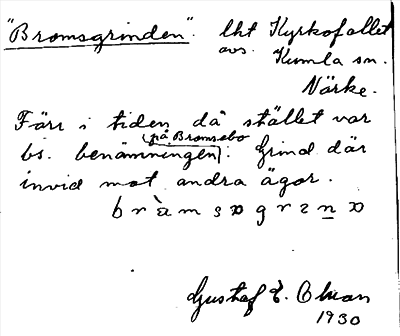 "Bromsgrinden". lht Kyrkofallet
avs. Kumla sn.
Närke.
Förr i tiden då stället var
bs. benämningen (på Bromsebo). Grind där
invid mot andra ägor.
Gustaf E.
1930